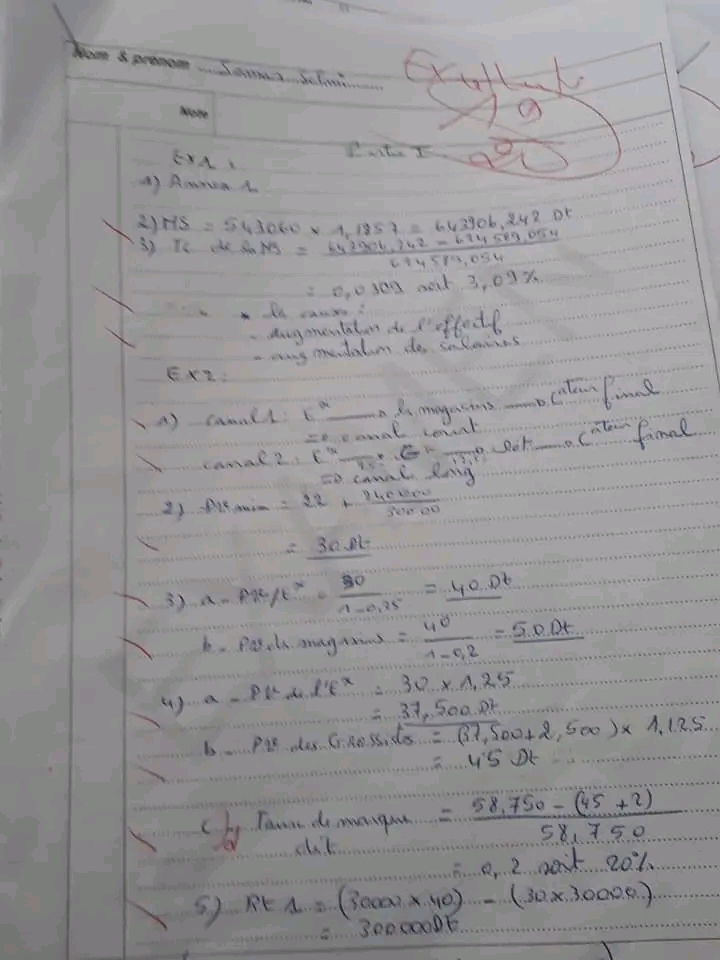 Nom & prénom ....Samar Selmi......
Excellent
Note
19
20
Partie I
EX1 :
1) Annexe 1
2) MS = 543060 × 1,1857 = 643906,242 Dt
3) Tc de la MS = 643906,242 - 624589,054
624589,054
= 0,0309 soit 3,09%
* les causes :
- augmentation de l'effectif
- augmentation des salaires
EX2 :
1) canal 1 : E^x → les magasins → C^ateur final
=> canal court
canal 2 : E^x → → det → C^ateur final
=> canal long
2) PV min = 22 + 240000
30000
= 30 Dt
3) a - PV/E^x = 30 = 40 Dt
1-0,25
b - PV des magasins = 40 = 50 Dt
1-0,2
4) a - PV de l'E^x = 30 × 1,25
= 37,500 Dt
b - PV des Grossistes = (37,500 + 2,500) × 1,125
= 45 Dt
c - Taux de marque = 58,750 - (45 + 2)
det 58,750
= 0,2 soit 20%
5) Rt 1 = (30000 × 40) - (30 × 30000)
= 300000Dt